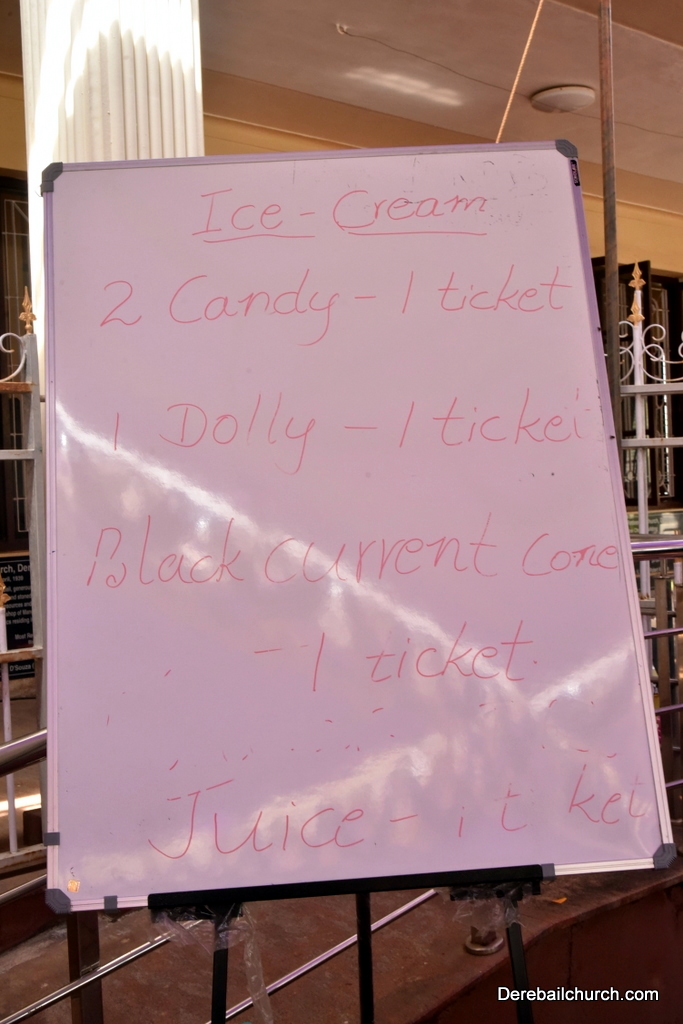 Ice - Cream
2 Candy - 1 ticket
1 Dolly - 1 ticket
Black current Cone
- 1 ticket.
Juice - 1 t ket
Derebailchurch.com